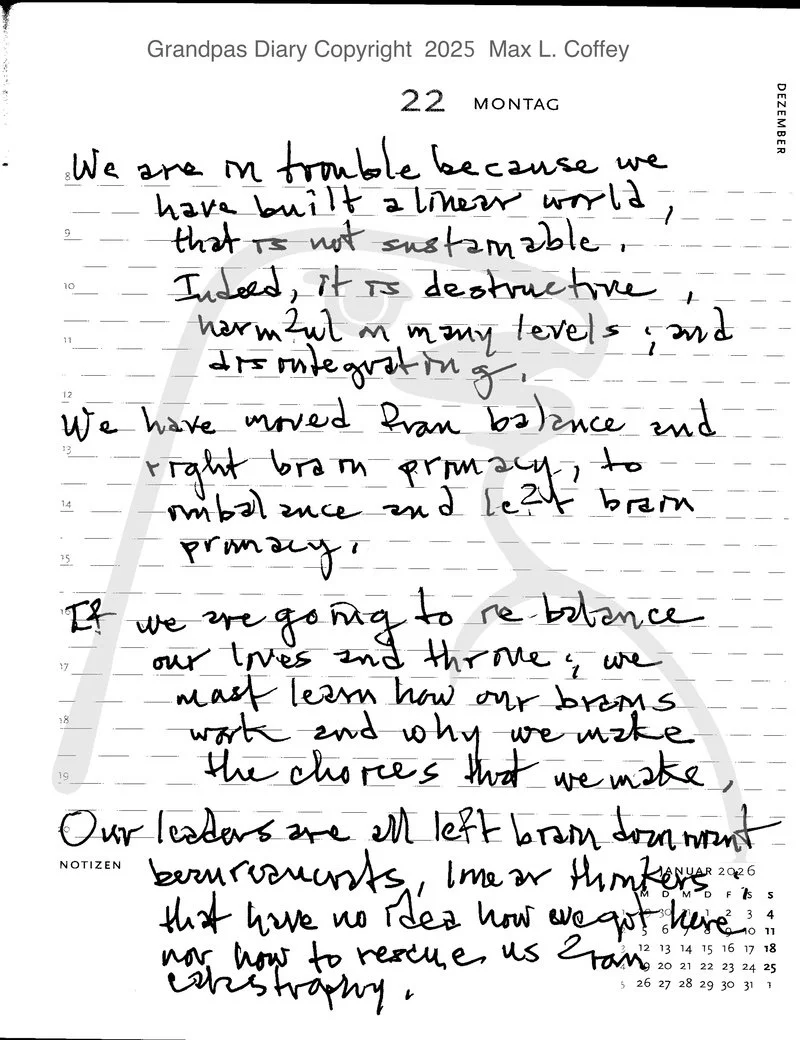 Grandpas Diary Copyright 2025 Max L. Coffey
22 MONTAG
DEZEMBER
We are in trouble because we
8
have built a linear world,
9
that is not sustainable.
10
Indeed, it is destructive,
harmful on many levels; and
11
disintegrating.
12
We have moved from balance and
13
right brain primacy, to
14
imbalance and left brain
15
primacy.
16
If we are going to re-balance
17
our lives and thrive; we
must learn how our brains
18
work and why we make
19
the choices that we make,
Our leaders are all left brain dominant
NOTIZEN
beaureaucrats, linear thinkers;
JANUAR 2026
M D M D F S S
that have no idea how we got here
1 2 3 4
5 6 7 8 9 10 11
nor how to rescue us from
12 13 14 15 16 17 18
19 20 21 22 23 24 25
catastrophy.
5 26 27 28 29 30 31 1